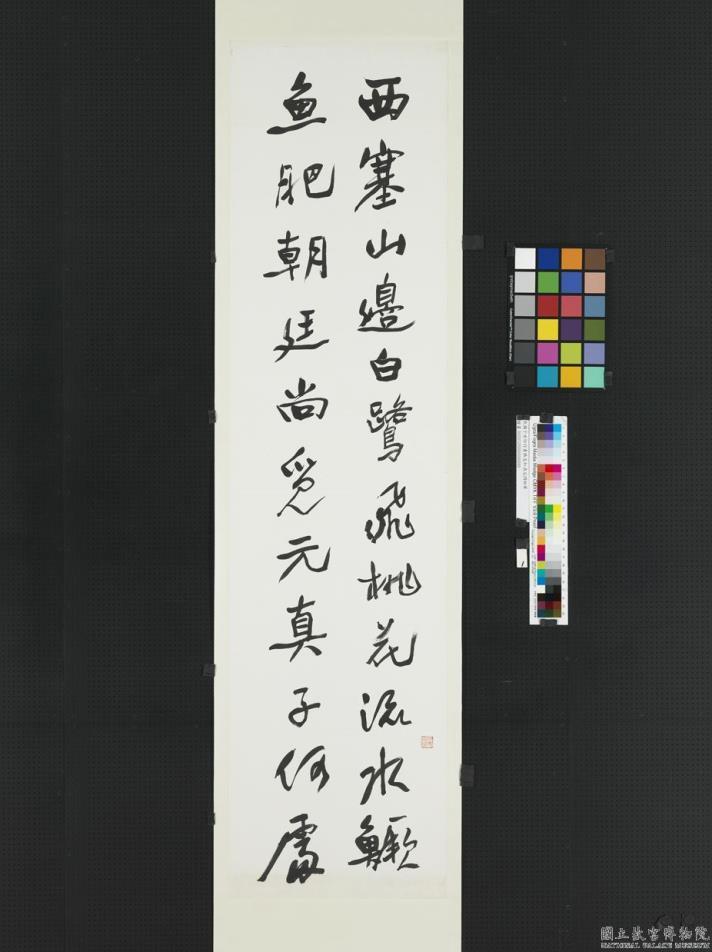 西塞山邊白鷺飛桃花流水鱖
魚肥朝廷尚覓元真子何處
國立故宮博物院
NATIONAL PALACE MUSEUM